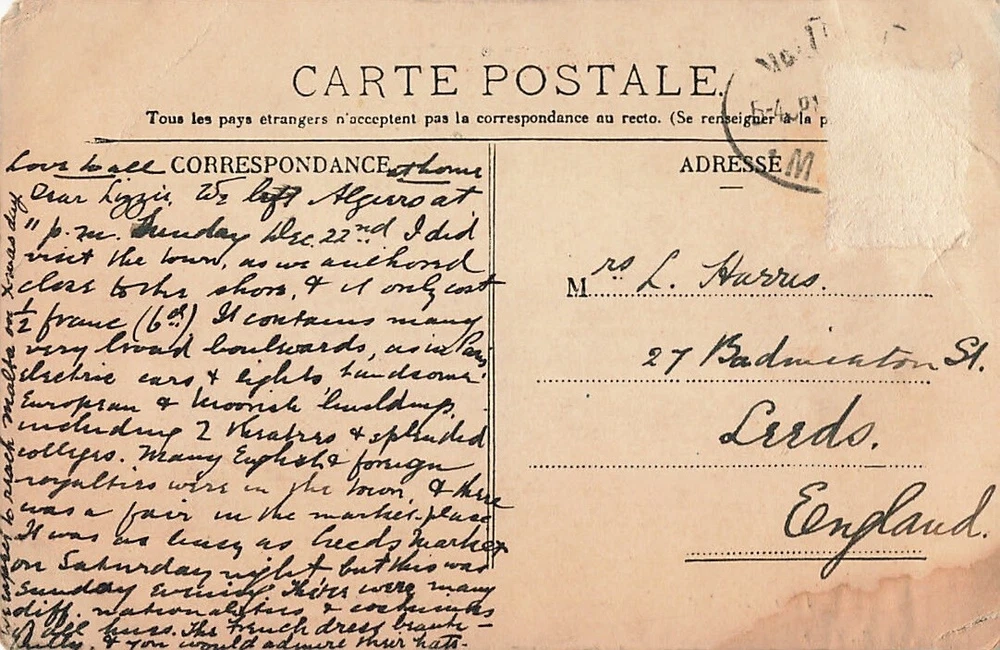 CARTE POSTALE.
Tous les pays étrangers n'acceptent pas la correspondance au recto. (Se renseigner à la p
CORRESPONDANCE
Love to all at home
Dear Lizzie, We left Algiers at
11 p.m. Sunday Dec. 22nd I did
visit the town, as we anchored
close to the shore, & it only cost
½ franc (6d.) It contains many
very broad boulevards, as in Paris
electric cars, & lights, handsome
European & Moorish buildings,
including 2 theatres & splendid
colleges. Many English & foreign
royalties were in the town, & there
was a fair in the market-place
It was as busy as Leeds Market
on Saturday night but this was
Sunday evening. There were many
diff. nationalities & costumes
all hues. The French dress beauti-
fully, & you would admire their hats.
We expect to reach Malta on Xmas day
ADRESSE
Mrs L. Harris.
27 Badminton St.
Leeds.
England.